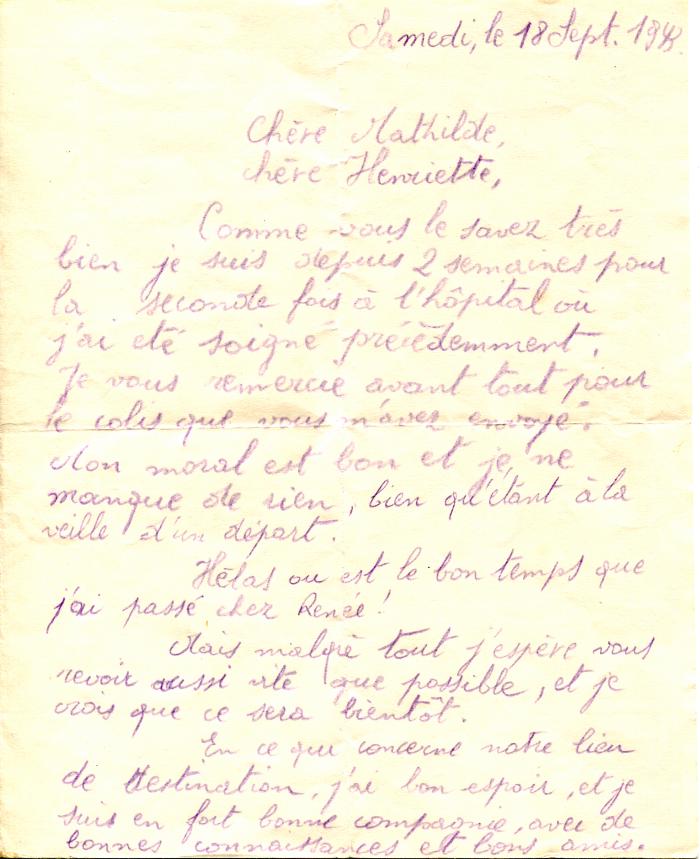 Samedi, le 18 Sept. 1943.
Chère Mathilde,
chère Henriette,
Comme vous le savez très
bien je suis depuis 2 semaines pour
la seconde fois à l'hôpital où
j'ai eté soigné précèdemment.
Je vous remercie avant tout pour
le colis que vous m'avez envoyé.
Mon moral est bon et je ne
manque de rien, bien qu'étant à la
veille d'un départ.
Hélas ou est le bon temps que
j'ai passé chez Renée!
Mais malgré tout j'espère vous
revoir aussi vite que possible, et je
crois que ce sera bientôt.
En ce qui concerne notre lieu
de destination, j'ai bon espoir, et je
suis en fort bonne compagnie, avec de
bonnes connaissances et bons amis.